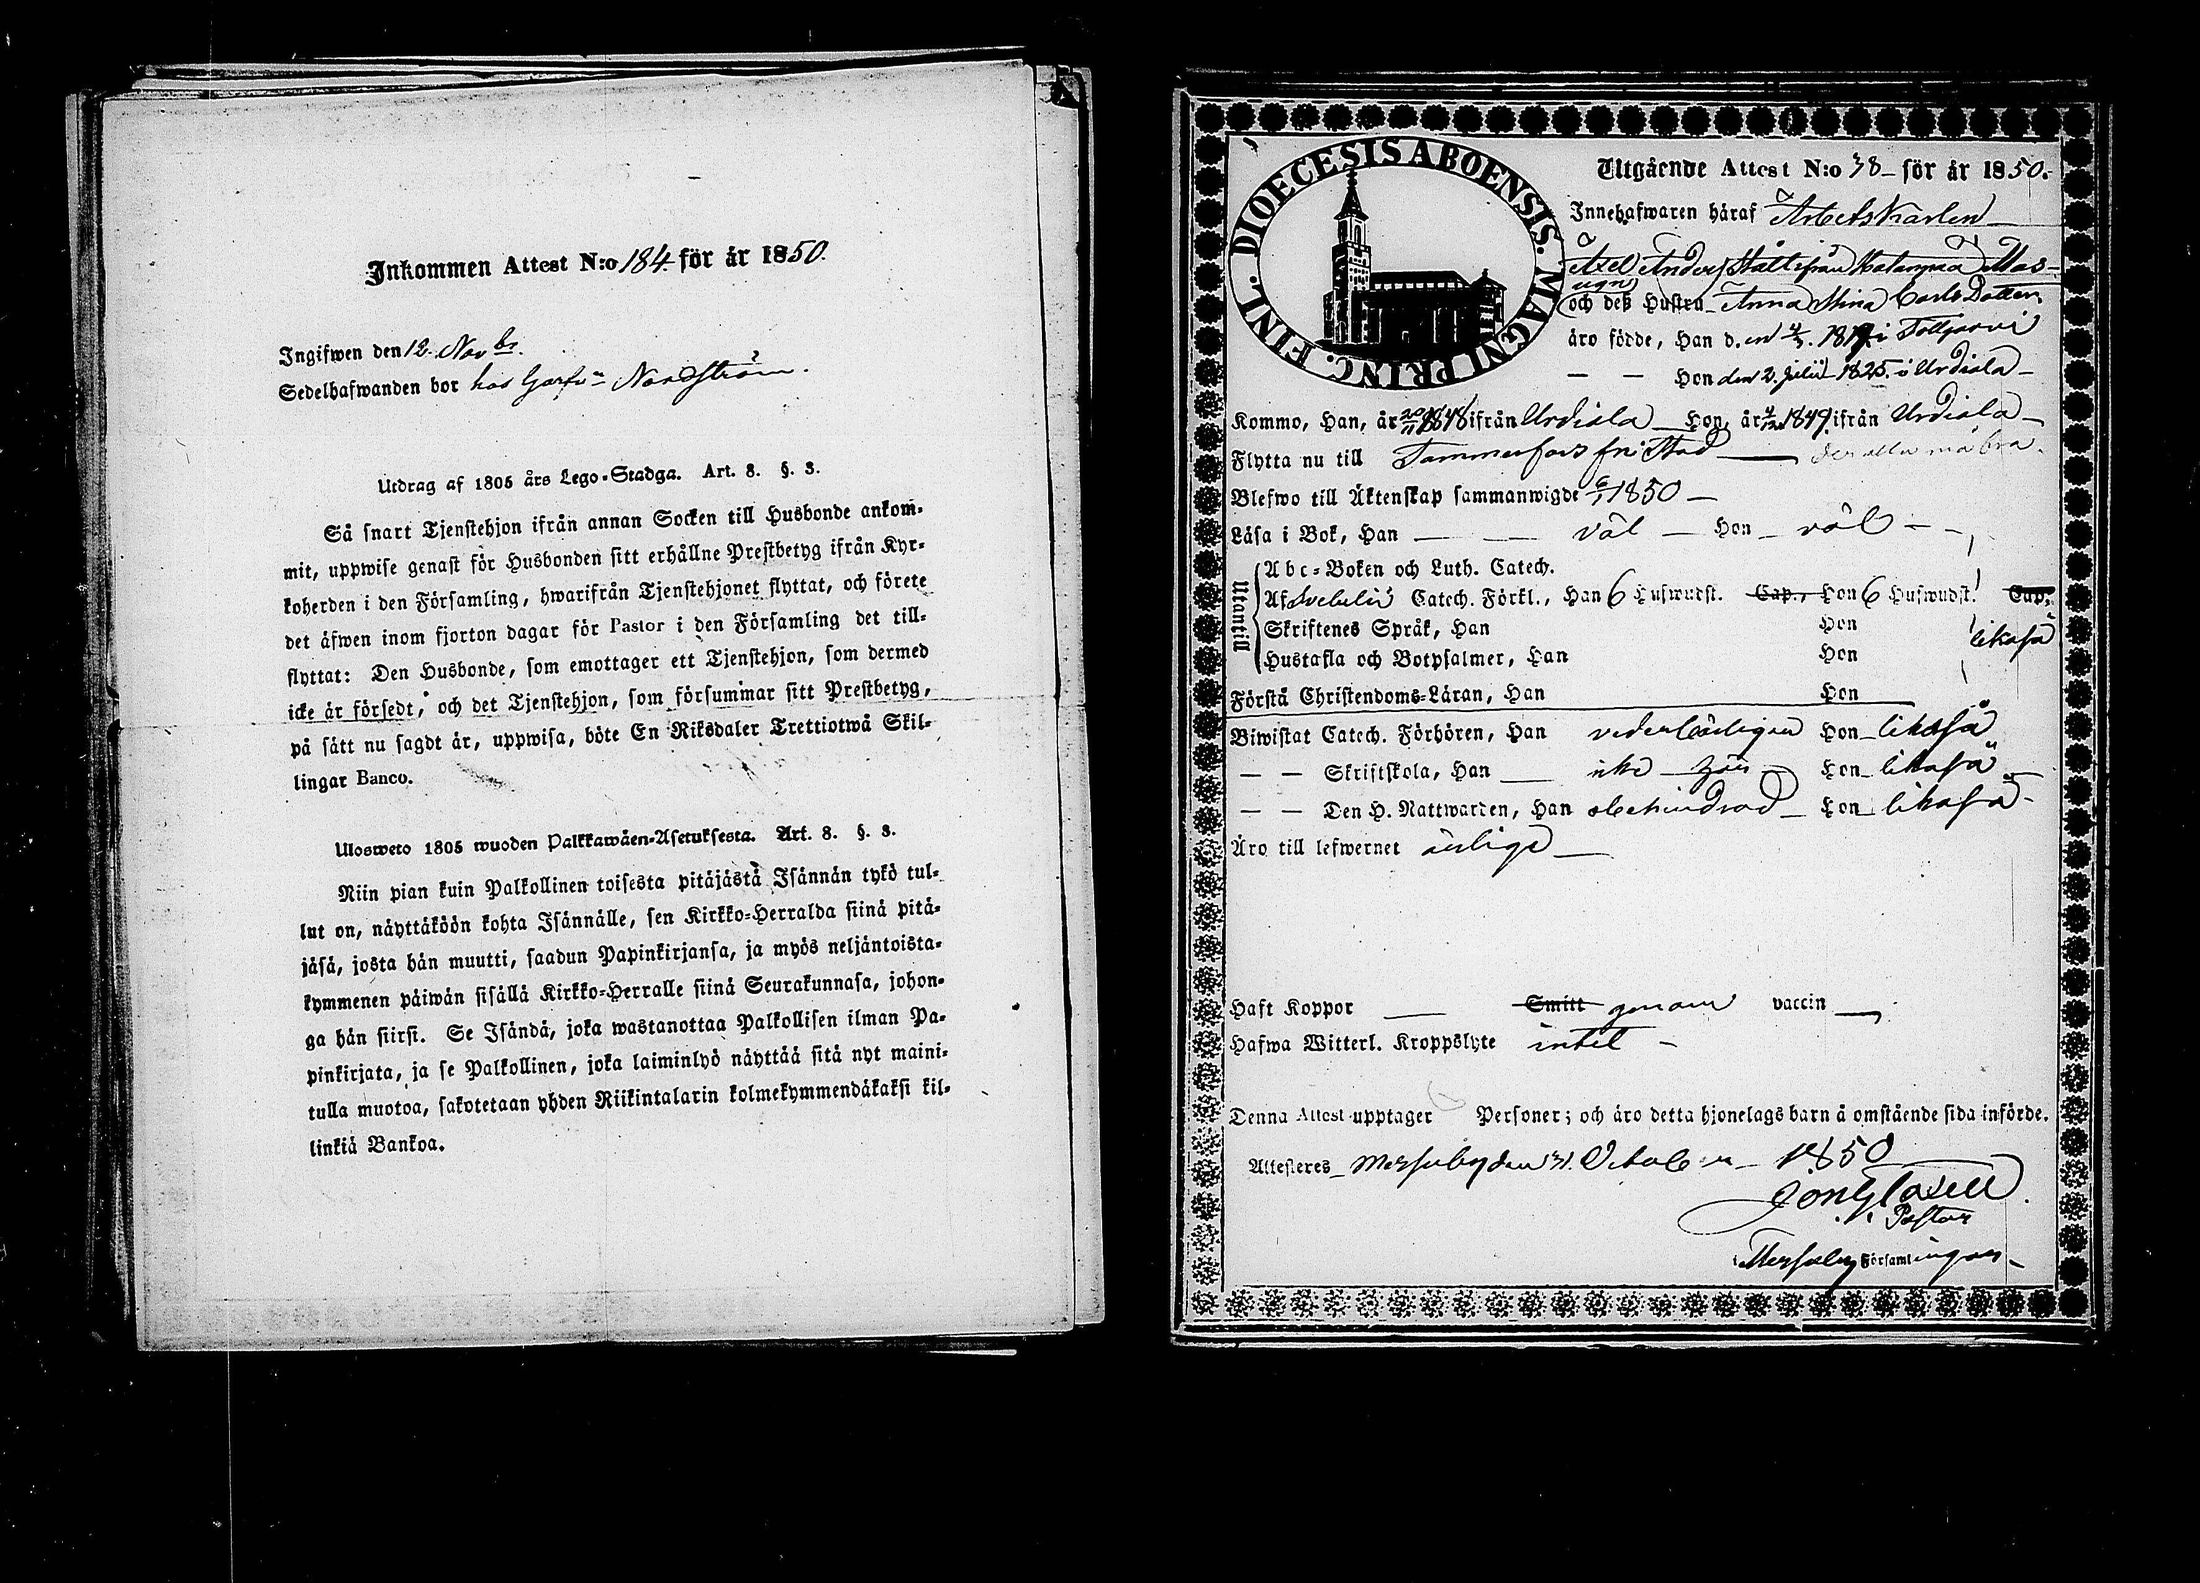 Inkommen Attest N:o 184. för år 1850.
Ingifwen den 12. Novbr.
Sedelhafwanden bor hos Garfv. Nordström.
Utdrag af 1805 års Lego-Stadga. Art. 8. §. 3.
Så snart Tjenstehjon ifrån annan Socken till Husbonde ankom-
mit, uppwise genast för Husbonden sitt erhållne Prestbetyg ifrån Kyr-
koherden i den Församling, hwarifrån Tjenstehjonet flyttat, och förete
det äfwen inom fjorton dagar för Pastor i den Församling det till-
flyttat: Den Husbonde, som emottager ett Tjenstehjon, som dermed
icke är försedt, och det Tjenstehjon, som försummar sitt Prestbetyg,
på sätt nu sagdt är, uppwisa, böte En Riksdaler Trettiotwå Skil-
lingar Banco.
Ulosweto 1805 wuoden Palkkawäen-Asetuksesta. Art. 8. §. 3.
Niin pian kuin Palkollinen toisesta pitäjästä Isännän tykö tul-
lut on, näyttäköön kohta Isännälle, sen Kirkko-Herralda siinä pitä-
jäsä, josta hän muutti, saadun Papinkirjansa, ja myös neljäntoista-
kymmenen päiwän sisällä Kirkko-Herralle siinä Seurakunnasa, johon-
ga hän siirsi. Se Isändä, joka wastanottaa Palkollisen ilman Pa-
pinkirjata, ja se Palkollinen, joka laiminlyö näyttää sitä nyt maini-
tulla muotoa, sakotetaan yhden Riikintalarin kolmekymmendäkaksi kil-
linkiä Bankoa.
DIOECESIS ABOENSIS. MAGNI PRINC. FINL.
Utgående Attest N:o 38 för år 1850.
Innehafwaren häraf Arbetskarlen
Axel Anders ifrån Mas-
ugn
och deß Hustru Anna Mina Carls Dotter
äro födde, Han d. en i Tottijärvi
Hon den 2. Julii 1825. i Urdiala
Kommo, Han, år 20/11 1848 ifrån Urdiala Hon, år 1849 ifrån Urdiala
Flytta nu till Tammerfors fri Stad
Blefwo till Äktenskap sammanwigde 6/1 1850
Läsa i Bok, Han väl Hon väl
Utantill
Abc-Boken och Luth. Catech.
Af Svebelii Catech. Förkl., Han 6 Hufwudst. Cap., Hon 6 Hufwudst. Cap.
Skriftenes Språk, Han Hon
likaså
Hustafla och Botpsalmer, Han Hon
Förstå Christendoms-Läran, Han Hon
Biwistat Catech. Förhören, Han vederbörligen Hon likaså
Skriftskola, Han icke här Hon likaså
Den H. Nattwarden, Han obehindrad Hon likaså
Äro till lefwernet ärliga
Haft Koppor Smitt genom vaccin
Hafwa Witterl. Kroppslyte intet
Denna Attest upptager Personer; och äro detta hjonelags barn å omstående sida införde.
Attesteres Messuby den 31. October 1850
Pastor
i Messuby Församlingen